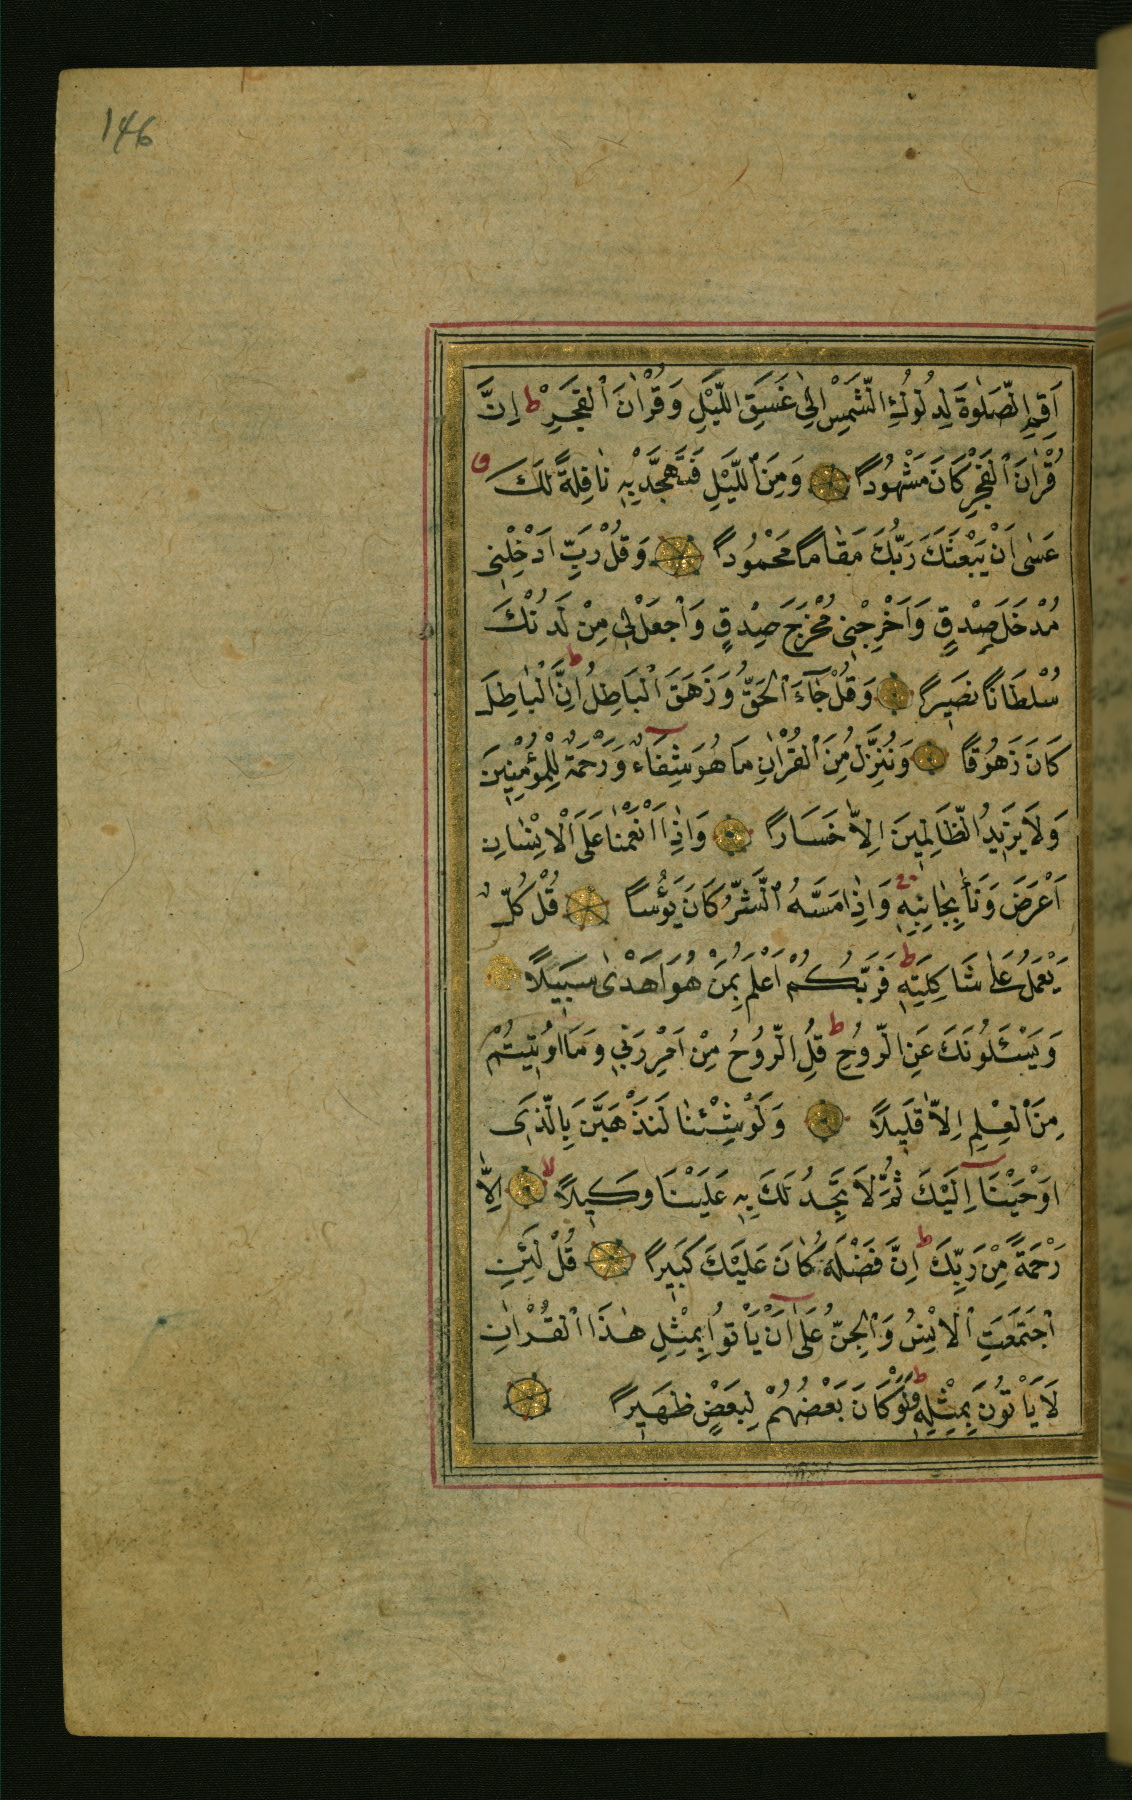 146
اَقِمِ الصَّلٰوةَ لِدُلُوكِ الشَّمْسِ اِلٰى غَسَقِ اللَّيْلِ وَقُرْاٰنَ الْفَجْرِ ط اِنَّ
قُرْاٰنَ الْفَجْرِ كَانَ مَشْهُودًا وَمِنَ اللَّيْلِ فَتَهَجَّدْ بِهٖ نَافِلَةً لَكَ
عَسٰى اَنْ يَبْعَثَكَ رَبُّكَ مَقَامًا مَحْمُودًا وَقُلْ رَبِّ اَدْخِلْنِى
مُدْخَلَ صِدْقٍ وَاَخْرِجْنِى مُخْرَجَ صِدْقٍ وَاجْعَلْ لِى مِنْ لَدُنْكَ
سُلْطَانًا نَصِيرًا وَقُلْ جَآءَ الْحَقُّ وَزَهَقَ الْبَاطِلُ ط اِنَّ الْبَاطِلَ
كَانَ زَهُوقًا وَنُنَزِّلُ مِنَ الْقُرْاٰنِ مَا هُوَ شِفَاءٌ وَرَحْمَةٌ لِلْمُؤْمِنِينَ
وَلَا يَزِيدُ الظَّالِمِينَ اِلَّا خَسَارًا وَاِذَا اَنْعَمْنَا عَلَى الْاِنْسَانِ
اَعْرَضَ وَنَاٰ بِجَانِبِهٖ وَاِذَا مَسَّهُ الشَّرُّ كَانَ يَؤُسًا قُلْ كُلٌّ
يَعْمَلُ عَلٰى شَاكِلَتِهٖ ط فَرَبُّكُمْ اَعْلَمُ بِمَنْ هُوَ اَهْدٰى سَبِيلًا
وَيَسْئَلُونَكَ عَنِ الرُّوحِ ط قُلِ الرُّوحُ مِنْ اَمْرِ رَبِّى وَمَا اُوتِيتُمْ
مِنَ الْعِلْمِ اِلَّا قَلِيلًا وَلَوْ شِئْنَا لَنَذْهَبَنَّ بِالَّذِى
اَوْحَيْنَا اِلَيْكَ ثُمَّ لَا تَجِدُ لَكَ بِهٖ عَلَيْنَا وَكِيلًا لا اِلَّا
رَحْمَةً مِنْ رَبِّكَ ط اِنَّ فَضْلَهُ كَانَ عَلَيْكَ كَبِيرًا قُلْ لَئِنِ
اجْتَمَعَتِ الْاِنْسُ وَالْجِنُّ عَلٰى اَنْ يَأْتُوا بِمِثْلِ هٰذَا الْقُرْاٰنِ
لَا يَأْتُونَ بِمِثْلِهٖ وَلَوْ كَانَ بَعْضُهُمْ لِبَعْضٍ ظَهِيرًا